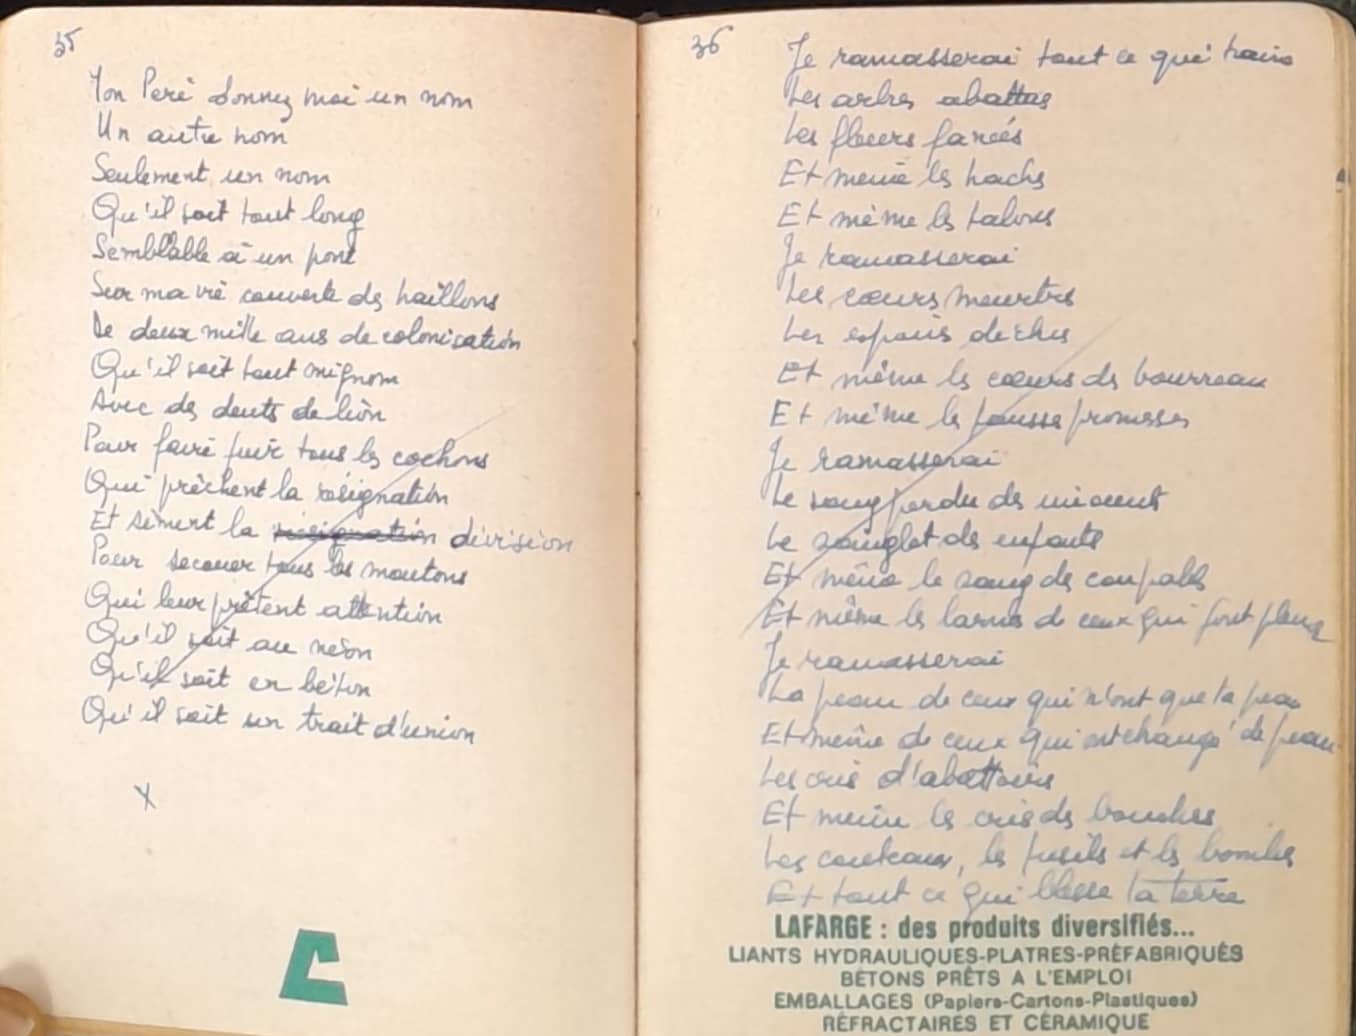 35
Mon Père donnez moi un nom
Un autre nom
Seulement un nom
Qu'il soit tout long
Semblable à un pont
Sur ma vie couverte des haillons
De deux mille ans de colonisation
Qu'il soit tout mignom
Avec des dents de lion
Pour faire fuir tous les cochons
Qui prêchent la résignation
Et sèment la résignation division
Pour secouer tous les moutons
Qui leur prêtent attention
Qu'il soit au néon
Qu'il soit en béton
Qu'il soit un trait d'union
X
36
Je ramasserai tout ce qui
Les arbres abattus
Les fleurs fanées
Et même les haches
Et même les talons
Je ramasserai
Les cœurs meurtris
Les espoirs déchus
Et même les cœurs des bourreau
Et même les fausse promesses
Je ramasserai
Le sang perdu des innocents
Le sanglot des enfants
Et même le sang des coupables
Et même les larmes de ceux qui font pleurer
Je ramasserai
La peau de ceux qui n'ont que la peau
Et même de ceux qui ont changé de peau
Les cris d'abattoirs
Et même les cris des bouches
Les couteaux, les fusils et les bombes
Et tout ce qui blesse la terre
LAFARGE : des produits diversifiés...
LIANTS HYDRAULIQUES-PLATRES-PRÉFABRIQUÉS
BÉTONS PRÊTS A L'EMPLOI
EMBALLAGES (Papiers-Cartons-Plastiques)
RÉFRACTAIRES ET CÉRAMIQUE